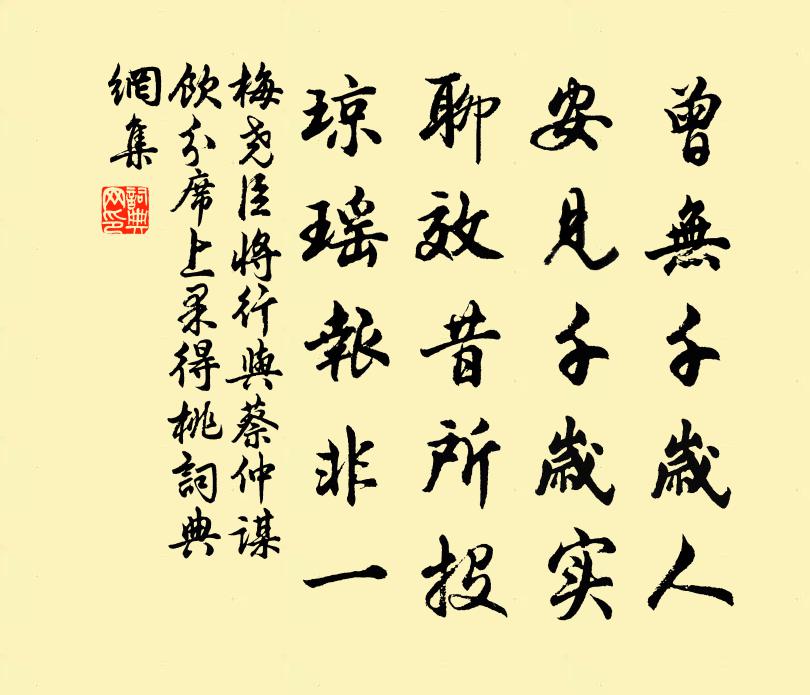 曾無千歲人
安見千歲实
聊效昔所投
琼瑶報非一
梅尧臣將行與蔡仲謀
飲分席上果得桃詞典
網集
詞典網印